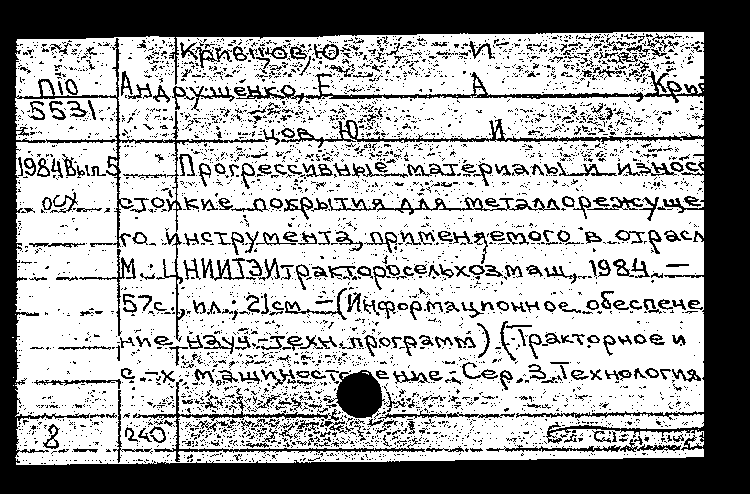 Кривцов, Ю И
П10 Андрущенко, Е А , Крив
5531
цов, Ю И
1984 Вып. 5 Прогрессивные материалы и износо
осх стойкие покрытия для металлорежуще-
го инструмента, применяемого в отрасл
М.: ЦНИИТЭИтракторосельхозмаш, 1984. —
57с., ил.; 21см — (Информационное обеспече
ние науч.-техн. программ) (Тракторное и
с.-х. машиностроение: Сер. 3. Технология
8 240 См. след.